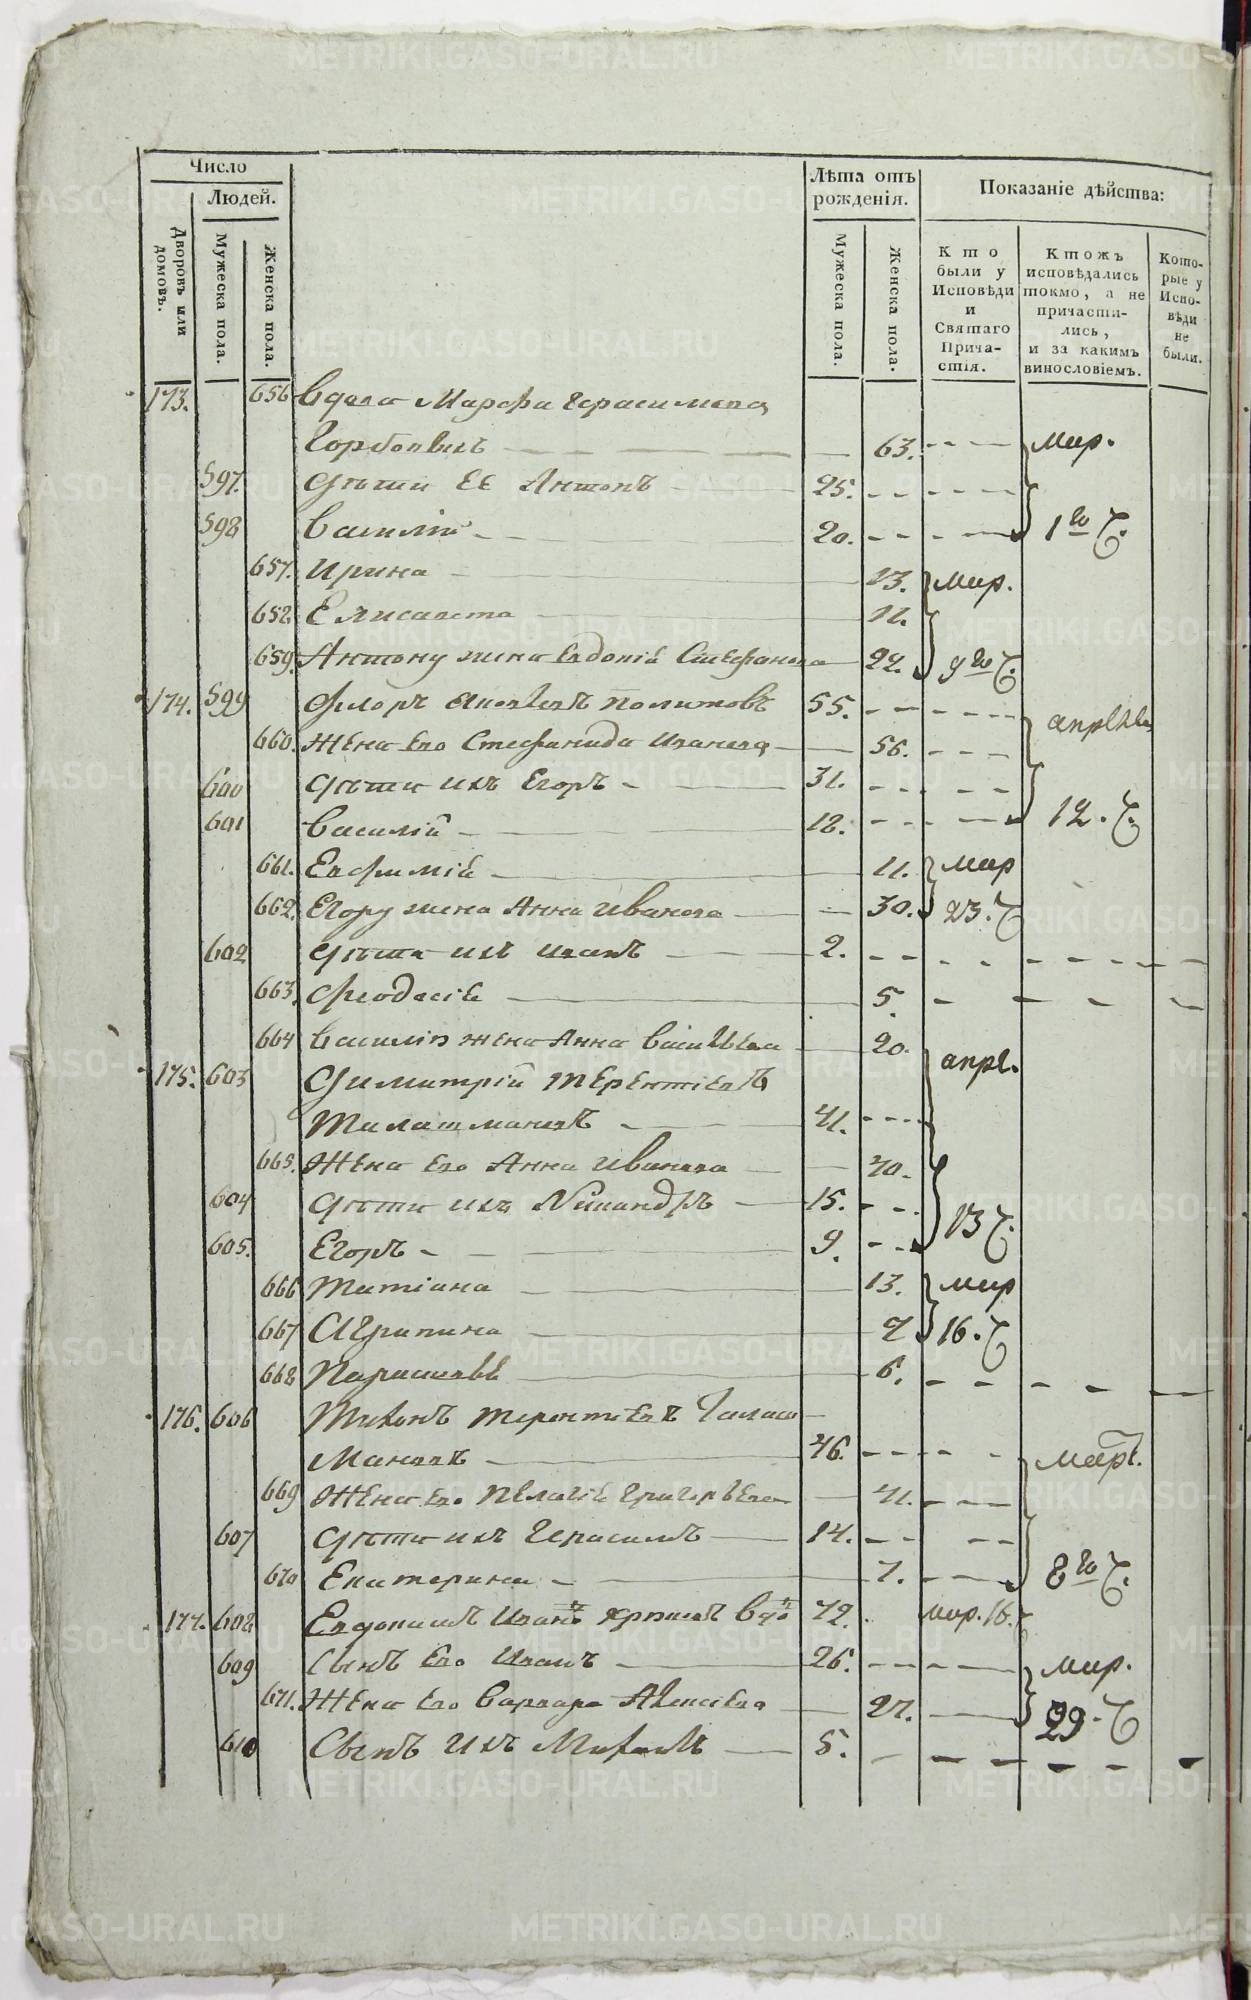 Число
Людей.
Дворовъ или домовъ.
Мужеска пола.
Женска пола.
Лѣта отъ рожденія.
Мужеска пола.
Женска пола.
Показаніе дѣйства:
Кто были у Исповѣди и Святаго Прича-стія.
Ктожъ исповѣдались токмо, а не причасти-лись, и за какимъ винословіемъ.
Кото-рые у Испо-вѣди не были.
173. 656 Вдова Марфа Герасимова
63. мар.
597. Дѣти ее Антонъ 25.
598 Василій 20. 1го Ч.
657. Ирина 13. мар.
658 Елисавета 11.
659. Антону жена Евдокіѧ Стефанова 22. 9го Ч.
174. 599 Флоръ Яковлевъ 55.
660. Жена его Стефанида Иванова 56.
600 Дѣти ихъ Егоръ 31.
601 Василій 18. 12. Ч.
661. Евфиміѧ 11. мар
662. Егору жена Анна Иванова 30. 23. Ч
602 Дѣти ихъ Иванъ 2.
663. Феодосіѧ 5.
664 Василія жена Анна 20. апрл.
175. 603 Димитрій Терентіевъ
41.
665. Жена его Анна Иванова 40.
604 Дѣти ихъ Никандръ 15. 13 Ч.
605. Егоръ 9.
666 Татіана 13. мар
667 Агрипина 16. Ч
668 Параскева 6.
176. 606 Тихонъ Терентіевъ
46. март.
669 Жена его Пелагіѧ Григорьева 41.
607 Дѣти ихъ Герасимъ 14.
670 Екатерина 7. 8го Ч.
177. 608 Евдокимъ мар. 16.
609 Сынъ его Иванъ 26. мар.
671. Жена его Варвара Алексіева 27. 29. Ч
610 Сынъ ихъ 5.
METRIKI.GASO-URAL.RU